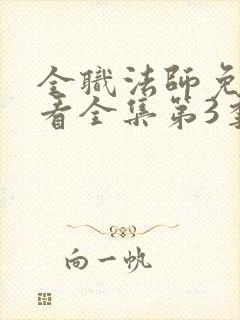 全職法師免
看全集第3季
向一帆